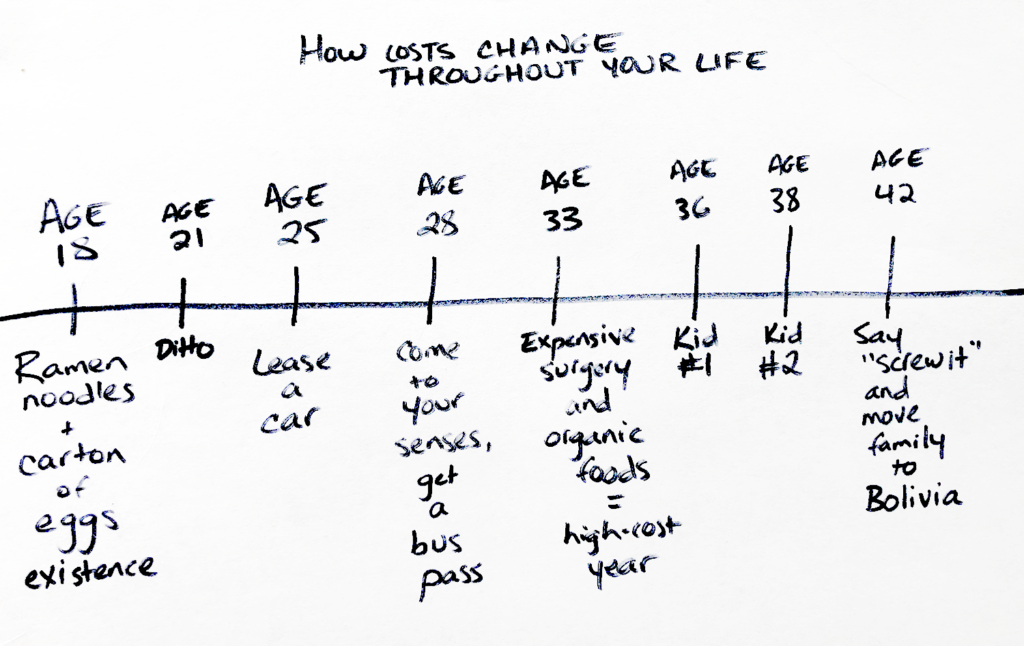 HOW COSTS CHANGE
THROUGHOUT YOUR LIFE
AGE
18
Ramen
noodles
+
carton
of
eggs
existence
AGE
21
Ditto
AGE
25
Lease
a
car
AGE
28
Come
to
your
senses,
get
a
bus
pass
AGE
33
Expensive
surgery
and
organic
foods
=
high-cost
year
AGE
36
Kid
#1
AGE
38
Kid
#2
AGE
42
Say
"screw it"
and
move
family
to
Bolivia